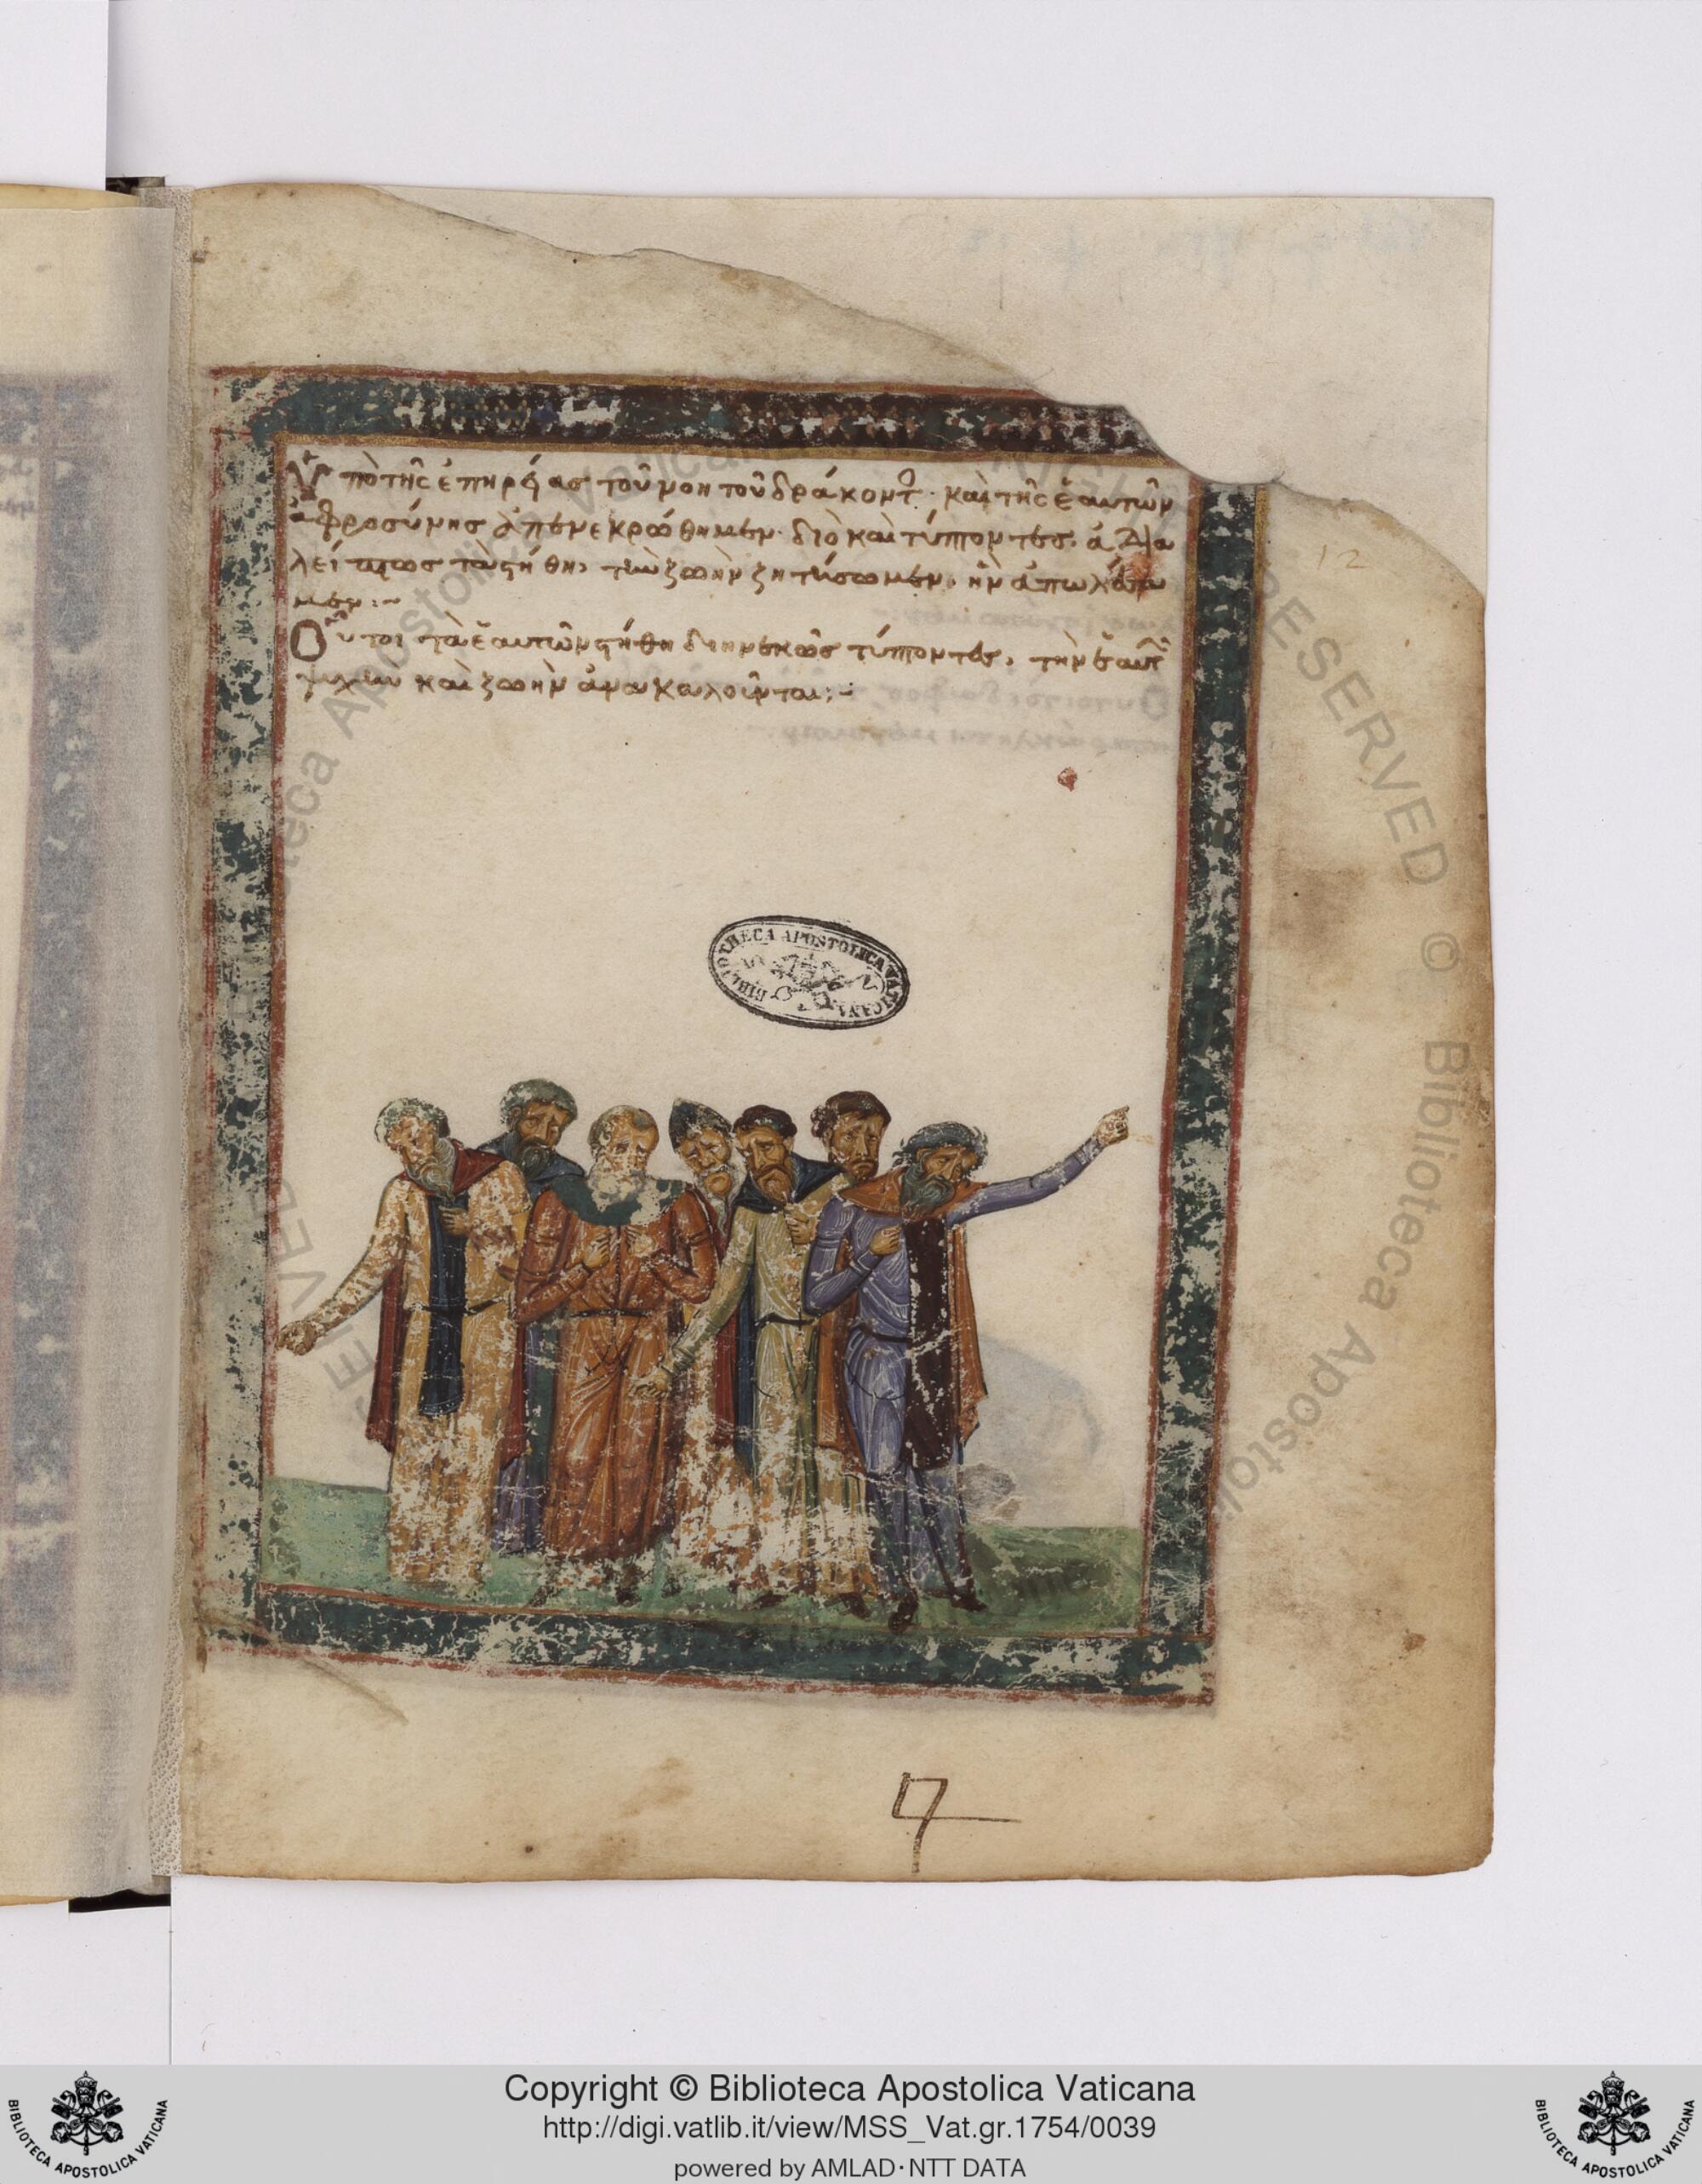 Ὑπὸ τῆς ἐπηρείας τοῦ νοητοῦ δράκοντ· καὶ τῆς ἑαυτῶν
ἀφροσύνης ἀπενεκρώθημεν· διὸ καὶ τύπτοντες ἀδια
λείπτως τὰ στήθη, τὴν ζωὴν ζητήσωμεν, ἣν ἀπωλέσα
μεν:~
Οὗτοι τὰ ἑαυτῶν στήθη διηνεκῶς τύπτοντες, τὴν ἑαυτῶν
ψυχὴν καὶ ζωὴν ἀνακαλοῦνται:~
12
BIBLIOTHECA APOSTOLICA VATICANA
RESERVED © Biblioteca Apostolica
Biblioteca Apostolica Vaticana
Copyright © Biblioteca Apostolica Vaticana
http://digi.vatlib.it/view/MSS_Vat.gr.1754/0039
powered by AMLAD·NTT DATA
BIBLIOTECA APOSTOLICA VATICANA
BIBLIOTECA APOSTOLICA VATICANA